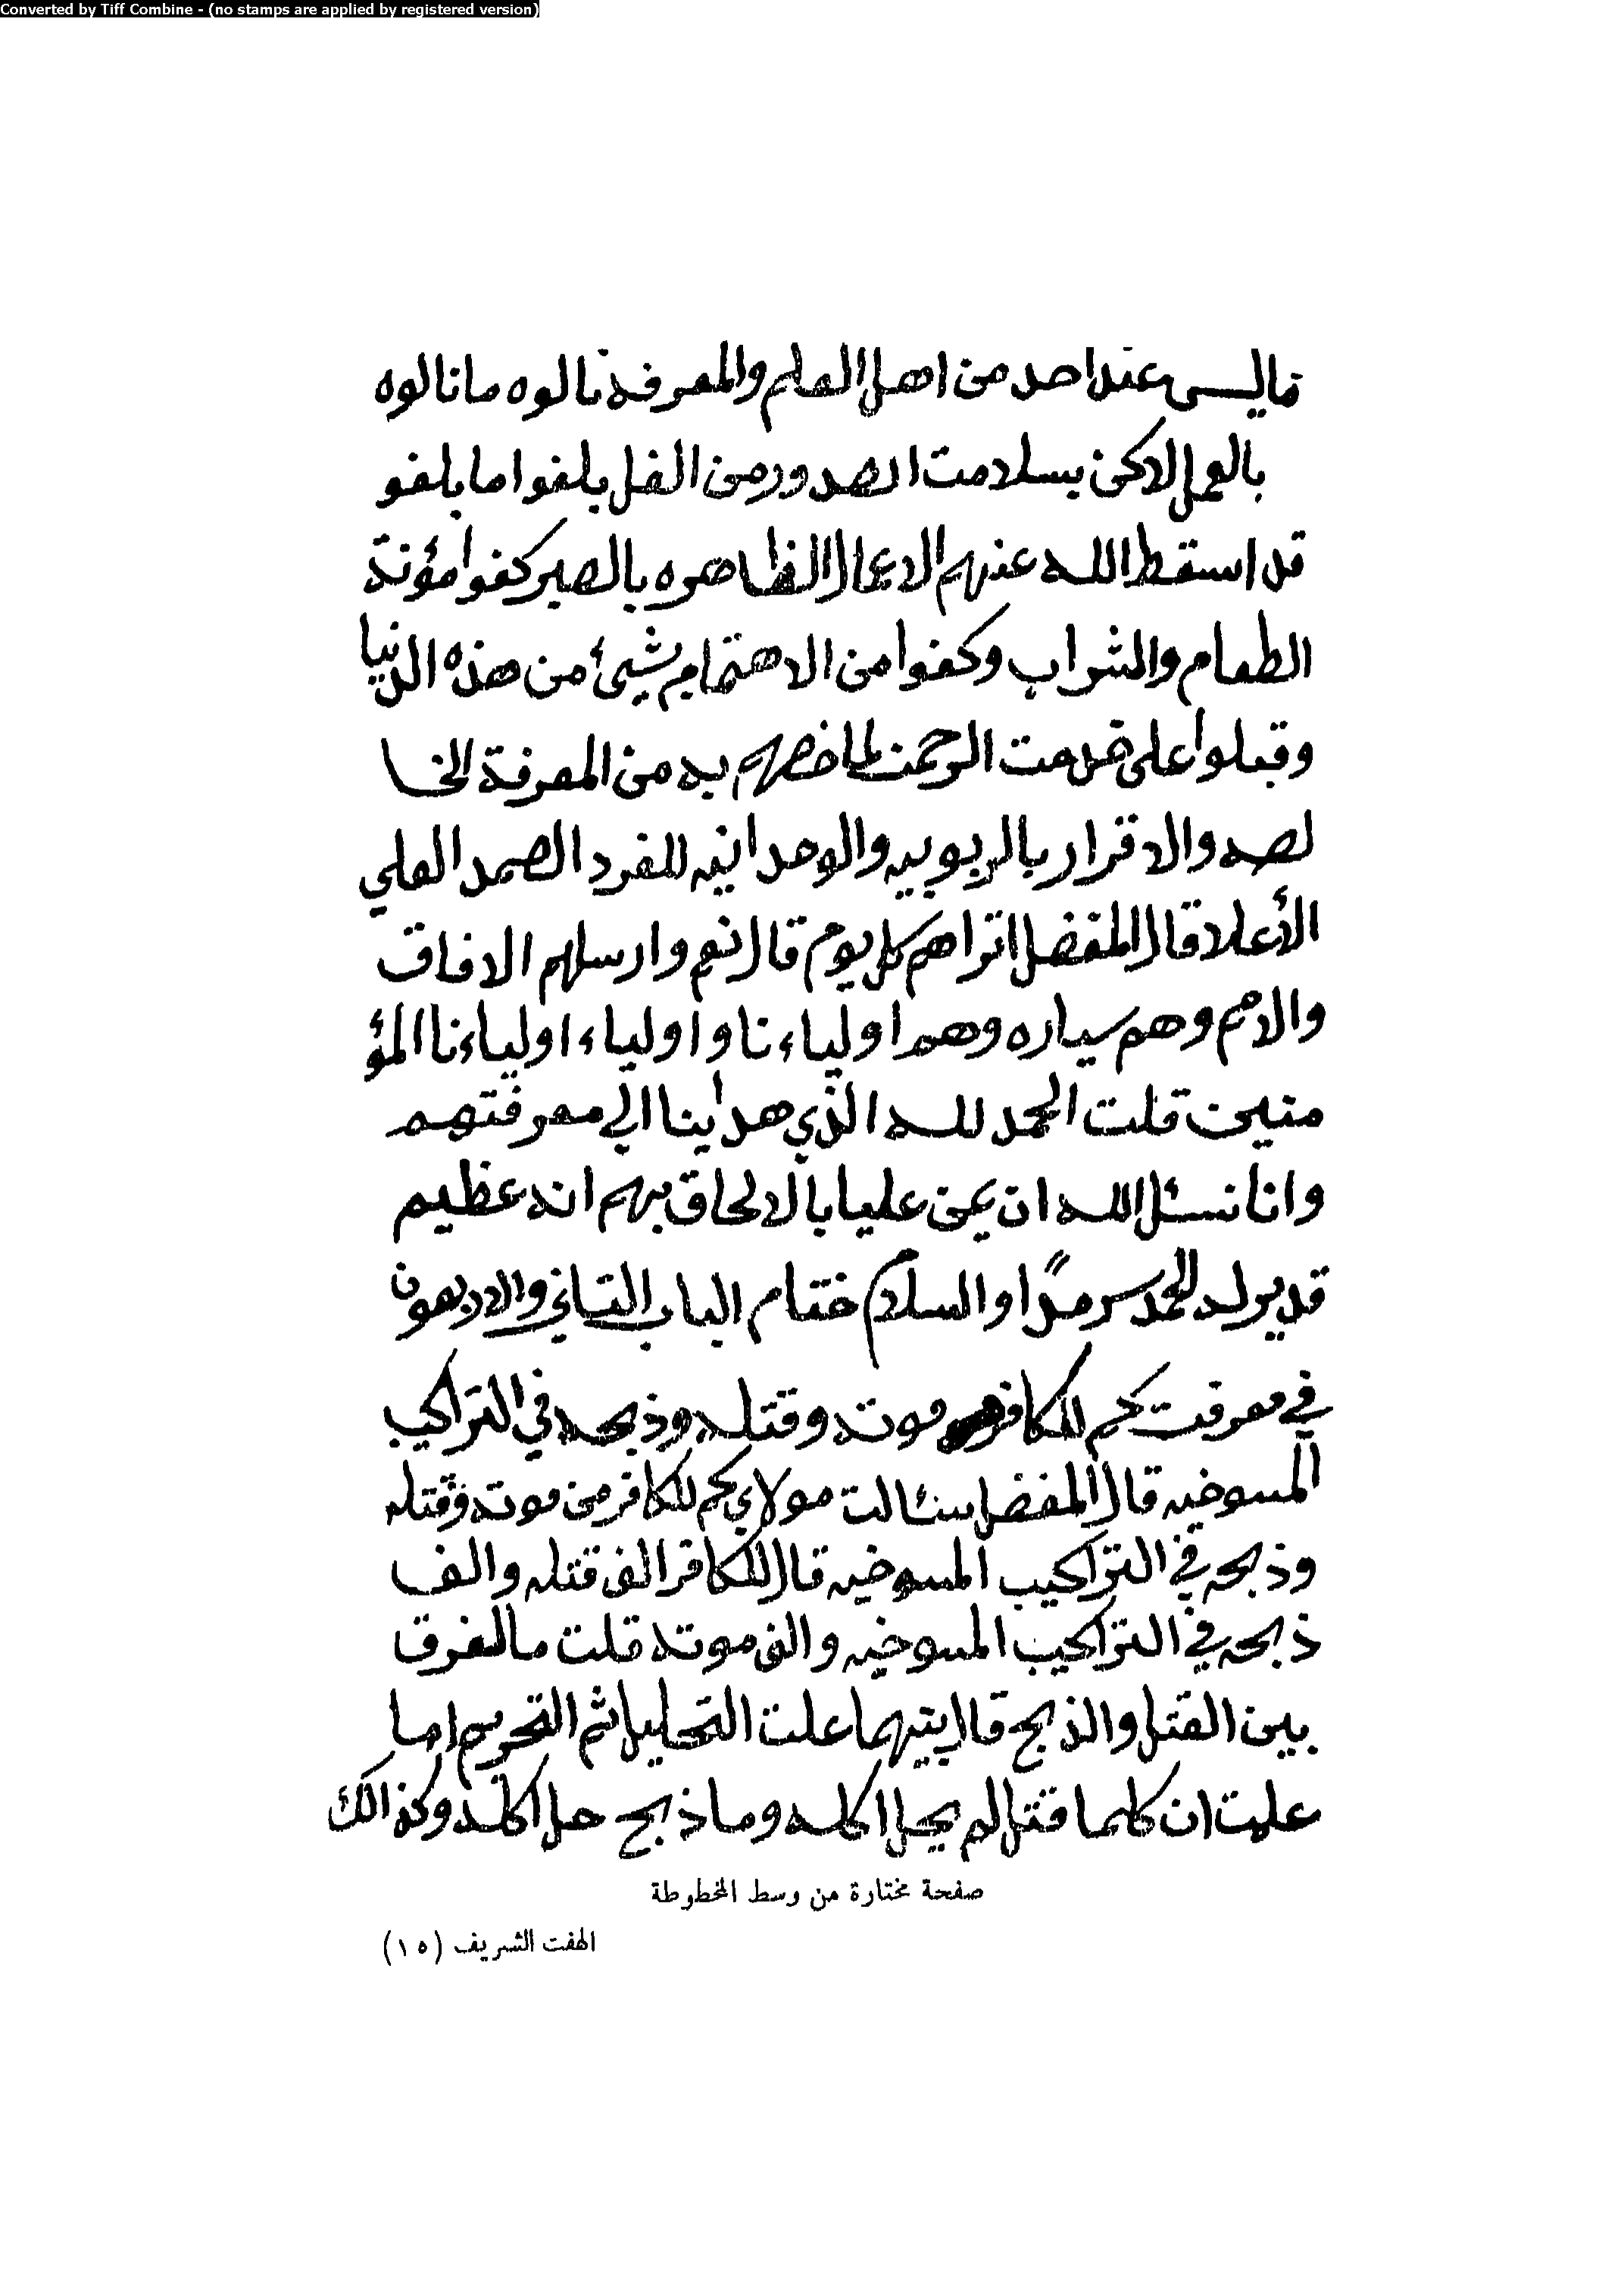 Converted by Tiff Combine - (no stamps are applied by registered version)
ماليس عند احد من اهل العلم والمعرفة نالوه مانالوه
بالعمل الاكن بسلامت الصدور من الغل بلغوا مابلغو
قد اسقط الله عنهم الاعمال الظاهره بالصبر كفوا مؤنة
الطعام والشراب وكفوا من الاهتمام بشيئ من هذه الدنيا
وقبلوا على خدمت الرحمن لما خصهم به من المعرفة الخا
لصه والاقرار بالربوبيه والوحدانيه للفرد الصمد العلي
الأعلا قال المفضل اتراهم كل يوم قال نعم وارسلهم الافاق
والامم وهم سياره وهم اولياءنا واولياء اولياءنا المؤ
منين قلت الحمد لله الذي هداينا الى معرفتهم
وانا نسئل الله ان يمن عليا بالالحاق بهم انه عظيم
قديو له الحمد سرمدًا والسلام ختام الباب الثاني والاربعون
في معرفت كم للكافر موته وقتله وذبحه في التراكيب
المسوخيه قال المفضل سئالت مولاي كم للكافر من موته وقتله
وذبحه في التراكيب المسوخيه قال للكافر الف قتله والف
ذبحه في التراكيب المسوخيه والف موته قلت مالفرق
بين القتل والذبح قال بينهما علت التحليل ثم التحريم اما
علمت ان كلما قتل لم يحل اكله وما ذبح حل اكله وكذالك
صفحة مختارة من وسط المخطوطة
الهفت الشريف (١٥)